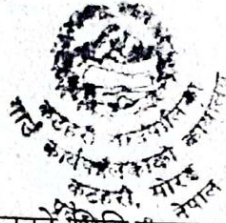 कटहरी गाउँपालिका
गाउँ कार्यपालिकाको कार्यालय
कटहरी, मोरङ
नेपाल